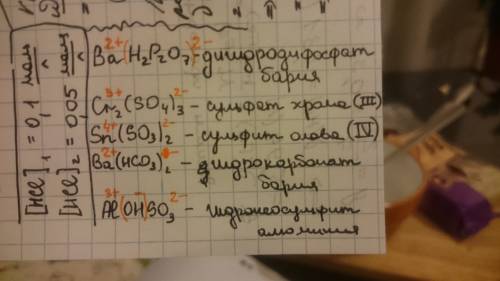 [HCl]₁ = 0,1 моль/л
[HCl]₂ = 0,05 моль/л
Ba²⁺(H₂P₂O₇)²⁻ - дигидродифосфат
бария
Cr₂³⁺(SO₄)₃²⁻ - сульфат хрома (III)
Sn⁴⁺(SO₃)₂²⁻ - сульфит олова (IV)
Ba²⁺(HCO₃)₂⁻ - гидрокарбонат
бария
Al³⁺(OH)SO₃²⁻ - гидроксосульфит
алюминия